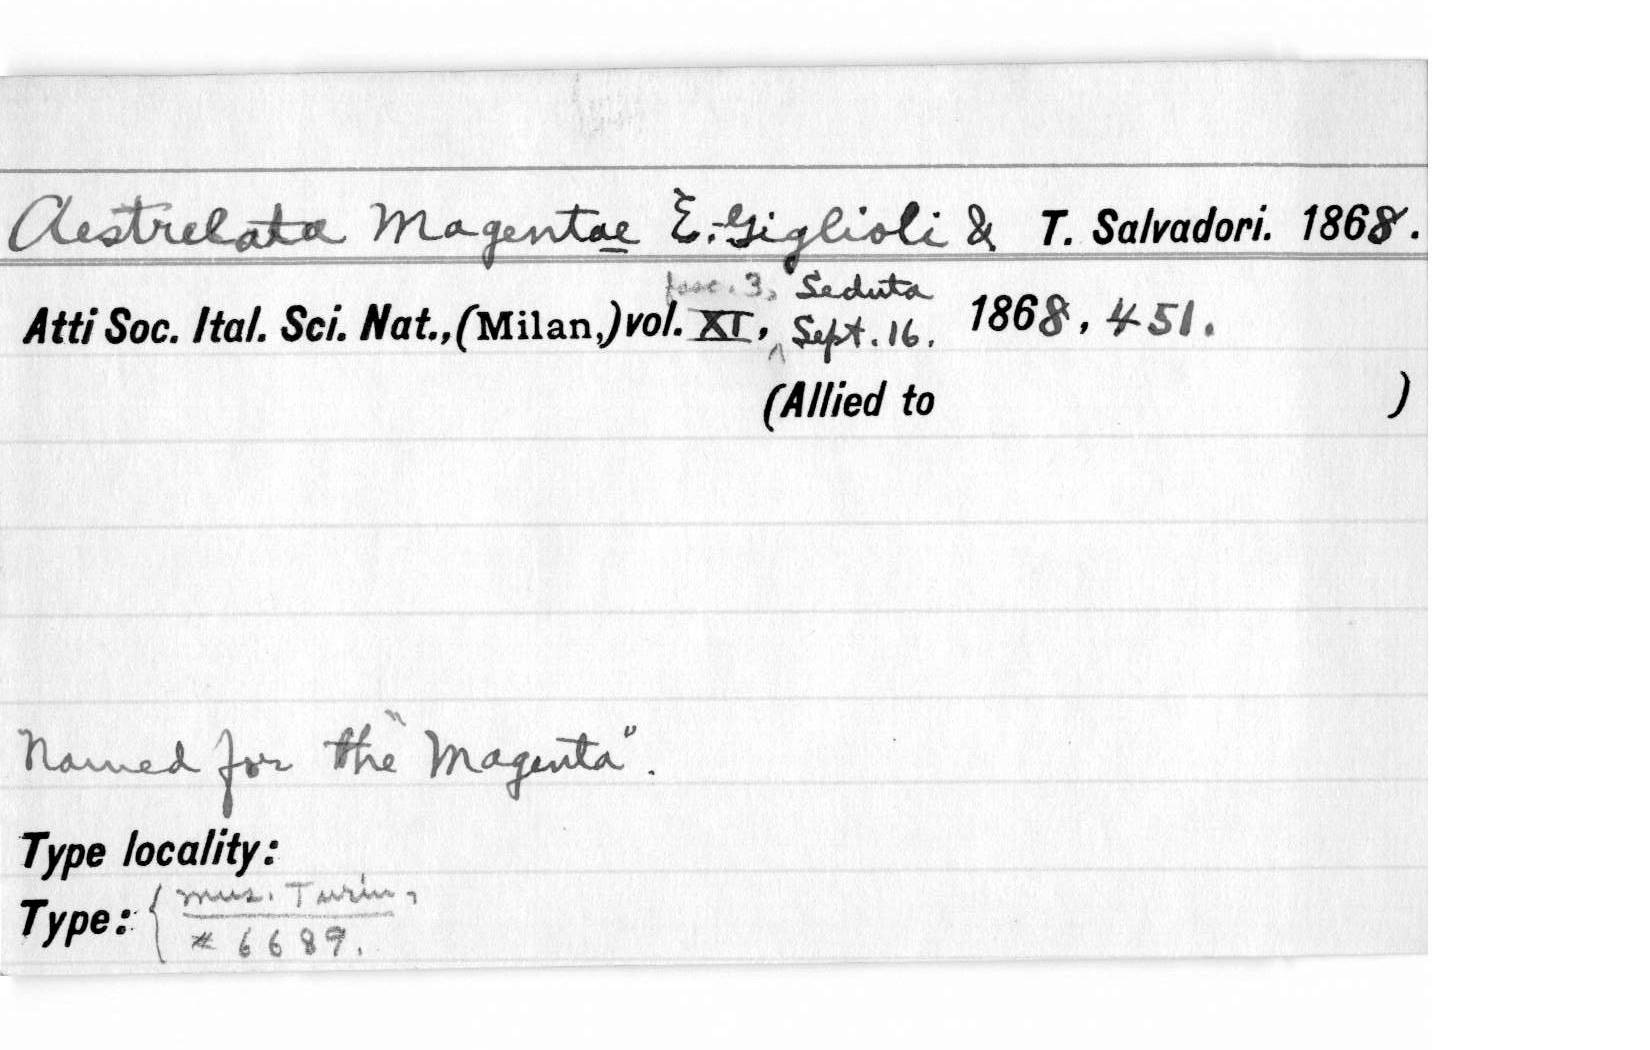 Aestrelata Magentae E. Giglioli & T. Salvadori. 1868.
fasc. 3, Seduta
Atti Soc. Ital. Sci. Nat.,(Milan,)vol. XI, Sept. 16. 1868, 451.
(Allied to )
Named for the "Magenta".
Type locality:
Type: { Mus. Turin,
# 6689.